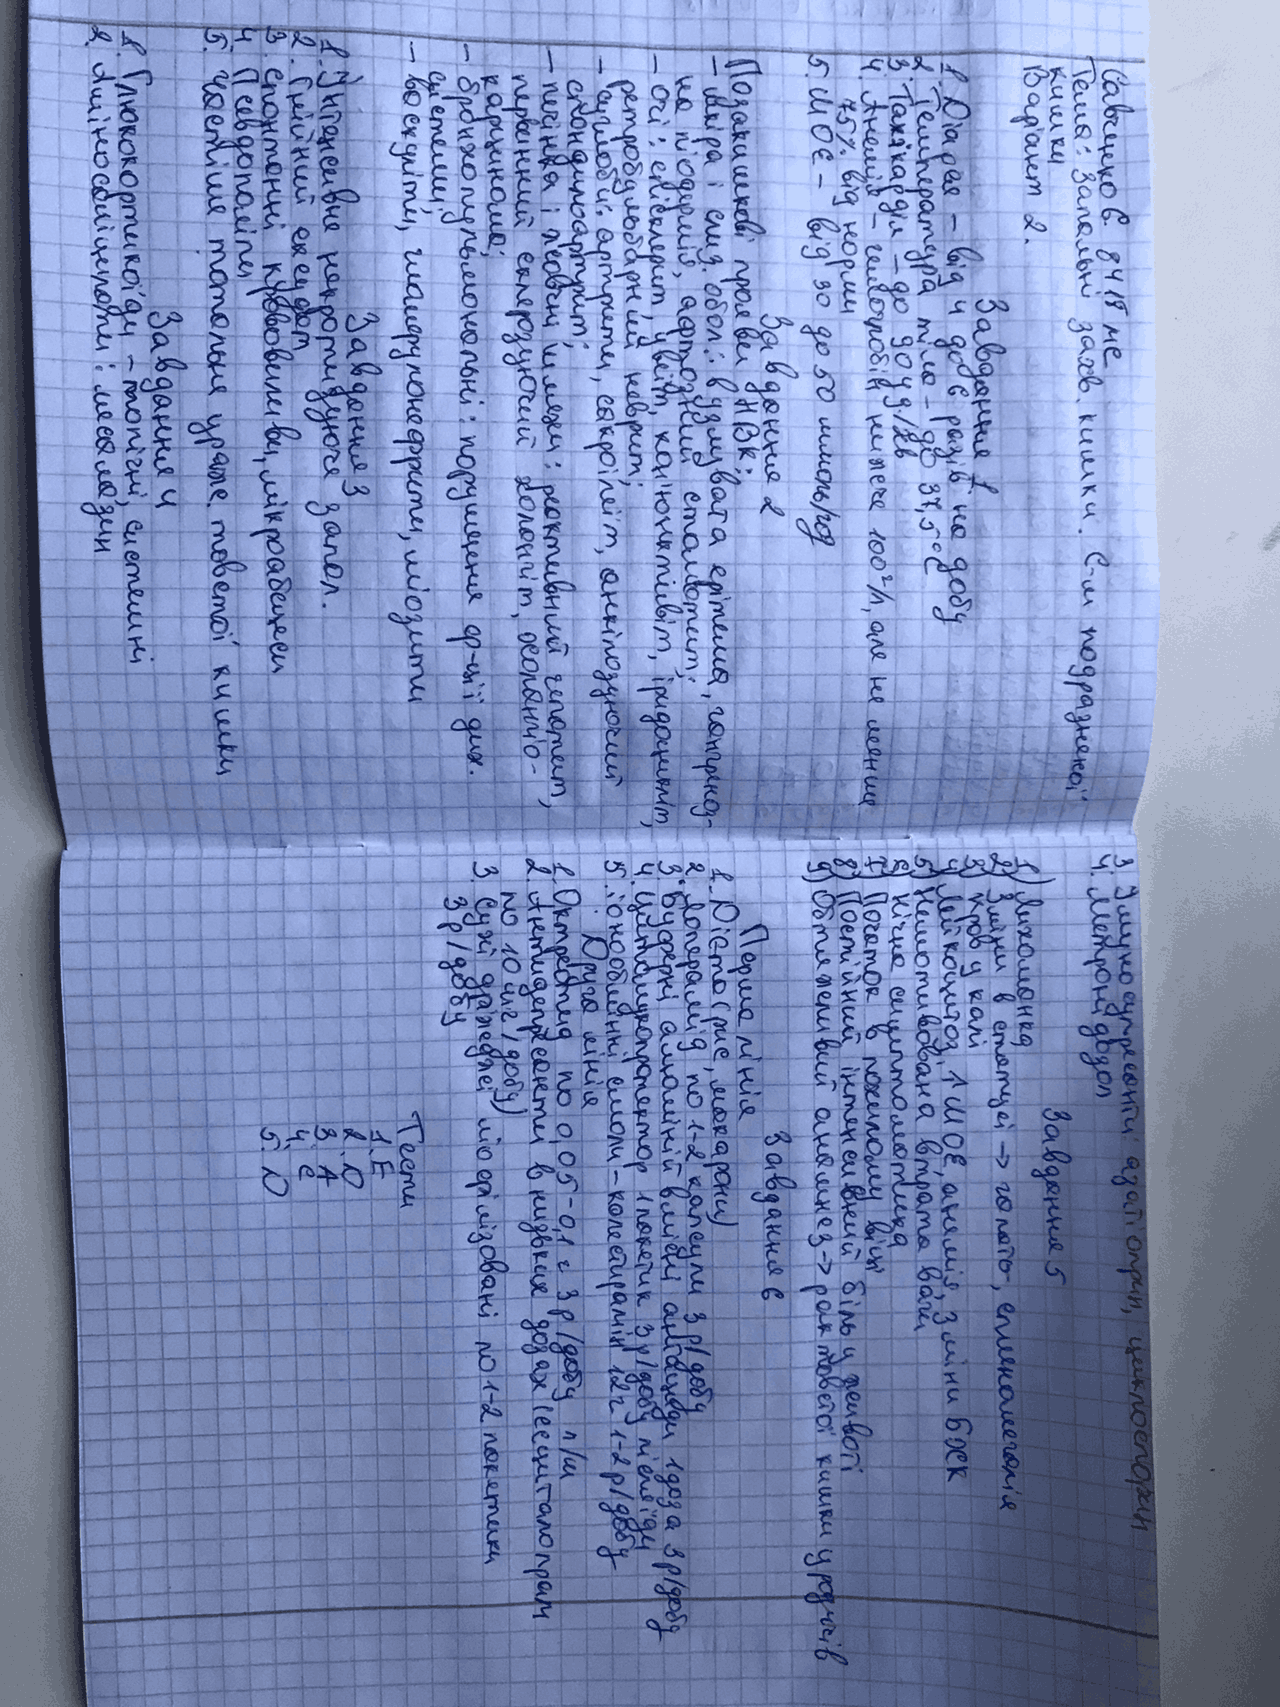 Савченко Є. 8418 мс
Тема: Запальні захв. кишки. С-м подразненої
кишки
Варіант 2.
Завдання 1
1. Діарея – від 4 до 6 разів на добу
2. Температура тіла – до 37,5°С
3. Тахікардія – до 90 уд/хв
4. Анемія – гемоглобін нижче 100 г/л, але не менше
75% від норми
5. ШОЕ – від 30 до 50 мм/год
Завдання 2
Позакишкові прояви НВК:
– шкіра і слиз. обол.: вузлувата ерітема, гангреноз-
на піодермія, афтозний стоматит;
– очі: епісклерит, увеїт, кон'юнктівіт, іридоцикліт,
ретробульбарний неврит;
– суглоби: артрити, сакроілеїт, анкілозуючий
спондилоартрит;
– печінка і жовчні шляхи: реактивний гепатит,
первинний склерозуючий холангіт, холангіо-
карцинома;
– бронхопульмональні: порушення ф-ції дих.
системи;
– васкуліти, гломерулонефрити, міозити
Завдання 3
1. Інтенсивне некротизуюче запал.
2. Гнійний ексудат
3. Спонтанні крововиливи, мікроабцеси
4. Псевдополіпи
5. Частіше тотальне ураже. товстої кишки
Завдання 4
1. Глюкокортикоїди – топічні, системні
2. Аміносаліцилати: месалазин
3. Імуносупресанти: азатіоприн, циклоспорин
4. Метронідозол
Завдання 5
1) Лихоманка
2) Зміни в статусі → гепато-, спленомегалія
3) Кров у калі
4) Лейкоцитоз, ↑ ШОЕ, анемія, зміни БХК
5) Немотивована втрата ваги
6) Нічна симптоматика
7) Початок в похилому віці
8) Постійний інтенсивний біль у животі
9) Обтяжливий анамнез → рак товстої кишки у родичів
Завдання 6
Перша лінія
1. Дієта (рис, макарони)
2. Лоперамід по 1-2 капсули 3 р/добу
3. Буферні алюміній вмісні антациди 1 доза 3 р/добу
4. Цитомукопротектор 1 пакетик 3 р/добу після їди
5. іонообмінні смоли – холестирамін 12 г 1-2 р/добу
Друга лінія
1. Октреотид по 0,05-0,1 г 3 р/добу п/ш
2. Антидепресанти в низьких дозах (есциталопрам
по 10 мг/добу)
3. Сухі дріжджі ліофілізовані по 1-2 пакетики
3 р/добу
Тести
1. Е
2. D
3. А
4. С
5. D